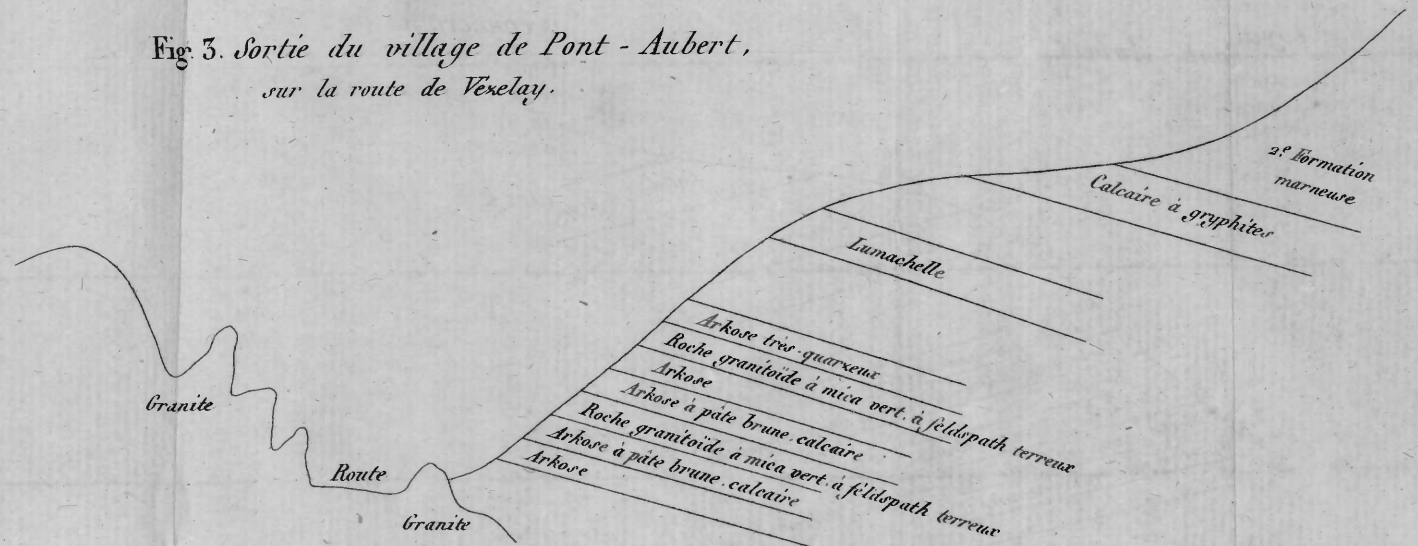 Fig. 3. Sortie du village de Pont - Aubert,
sur la route de Vézelay.
2.e Formation
marneuse
Calcaire à gryphites
Lumachelle
Arkose très-quarzeux
Roche granitoïde à mica vert. à feldspath terreux
Arkose
Arkose à pâte brune calcaire
Roche granitoïde à mica vert. à feldspath terreux
Arkose à pâte brune calcaire
Arkose
Granite
Route
Granite